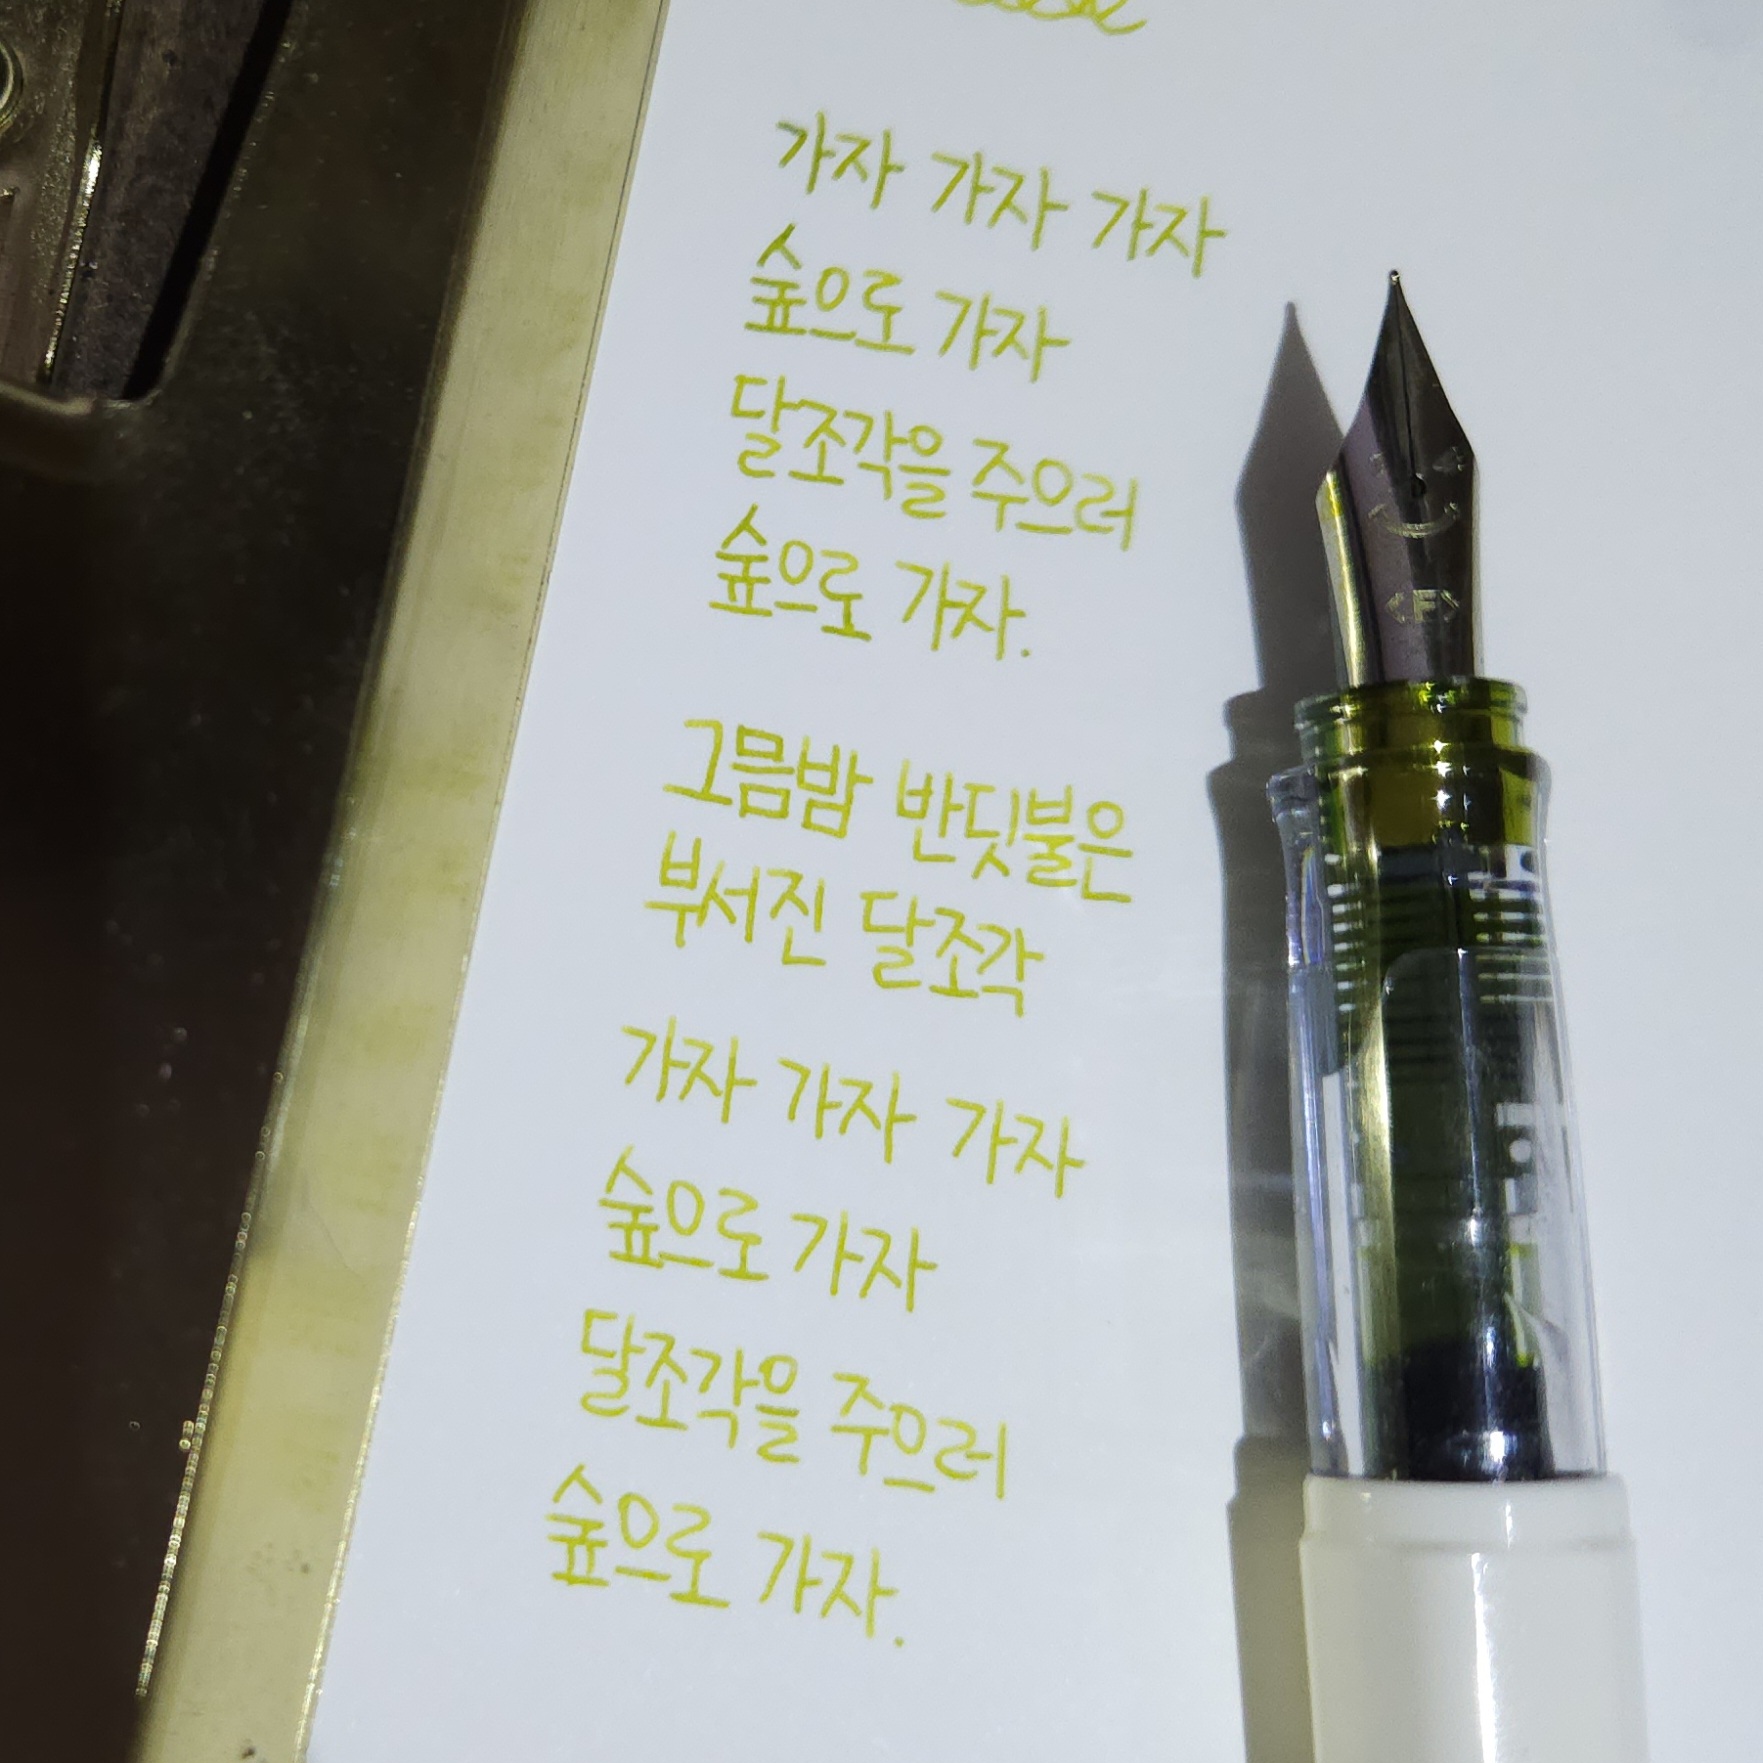 가자 가자 가자
숲으로 가자
달조각을 주으러
숲으로 가자.
그믐밤 반딧불은
부서진 달조각
가자 가자 가자
숲으로 가자
달조각을 주으러
숲으로 가자.
<F>